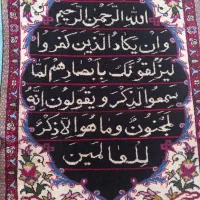 الله الرحمن الرحیم
وان یکاد الذین کفروا
لیزلقونک بابصارهم لما
سمعوا الذکر ویقولون انه
لمجنون وما هو الا ذکر
للعالمین